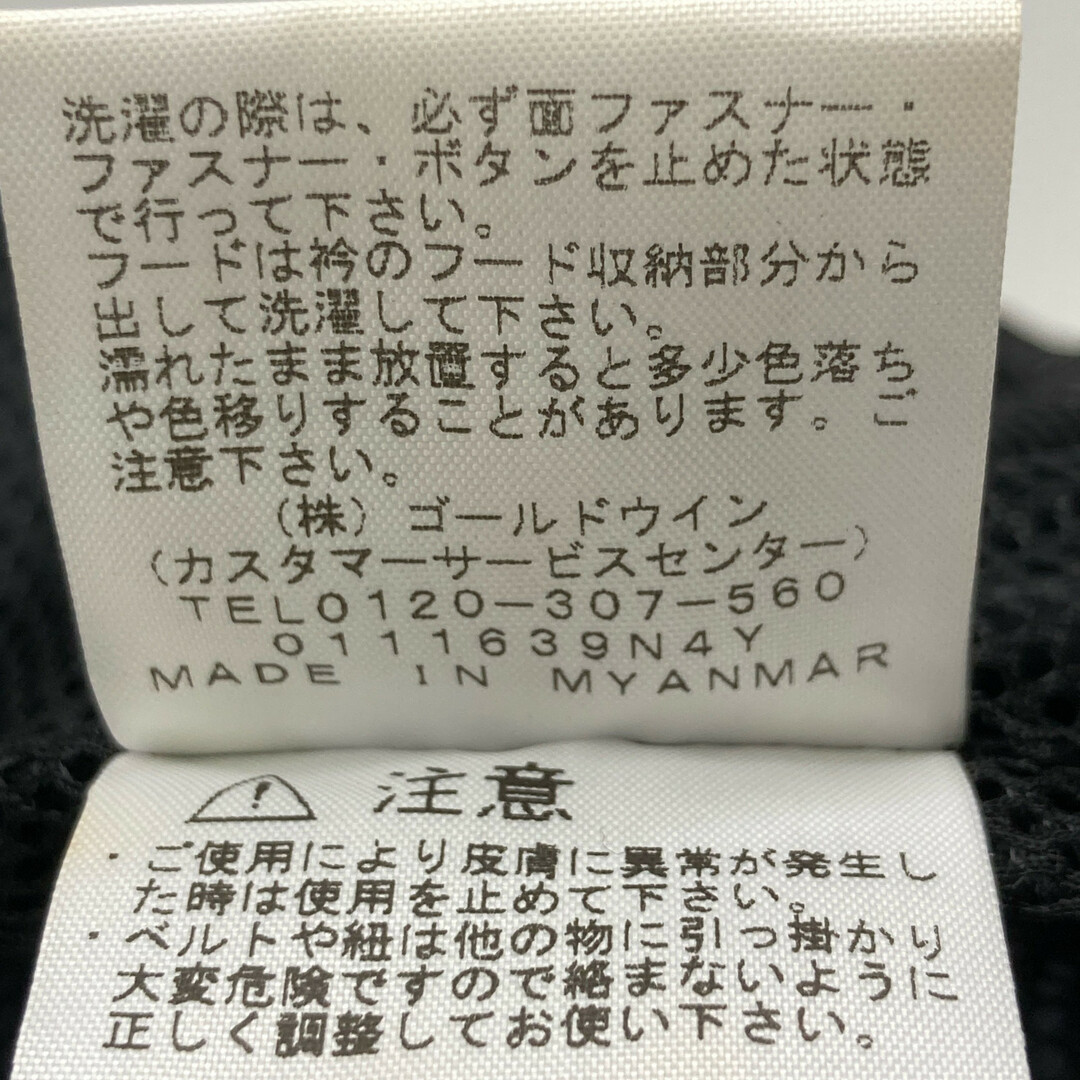 洗濯の際は、必ず面ファスナー・
ファスナー・ボタンを止めた状態
で行って下さい。
フードは衿のフード収納部分から
出して洗濯して下さい。
濡れたまま放置すると多少色落ち
や色移りすることがあります。ご
注意下さい。
(株)ゴールドウイン
(カスタマーサービスセンター)
TEL0120-307-560
0111639N4Y
MADE IN MYANMAR
注意
・ご使用により皮膚に異常が発生し
た時は使用を止めて下さい。
・ベルトや紐は他の物に引っ掛かり
大変危険ですので絡まないように
正しく調整してお使い下さい。